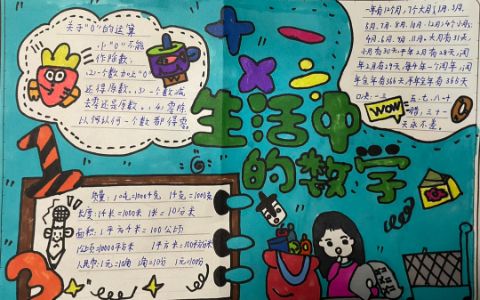 关于"0"的运算
小"0"不能
作除数.
(2)一个数加上"0"
还得原数. (3)一个数减
去零还是原数. (4)零除
以任何一个数都得零.
一年有12个月,7个大月1月.3月.
5月.7月.8月.10月.12月;4个小月;
4月.6月.9月.11月.大月有31天
小月有30天.平年2月有28天,闰
年2月有29天.每4年一个闰年,闰
年全年有366天,平年全年有365天
三十一
天永不差.
WOW
生活中
的数学
1
3
质量:1吨=1000千克 1千克=1000克
长度:1千米=1000米 1米=10分米
面积:1平方千米=100公顷
1公顷=10000平方米 1平方米=100平方分米
人民币:1元=10角 1角=10分 1元=100分